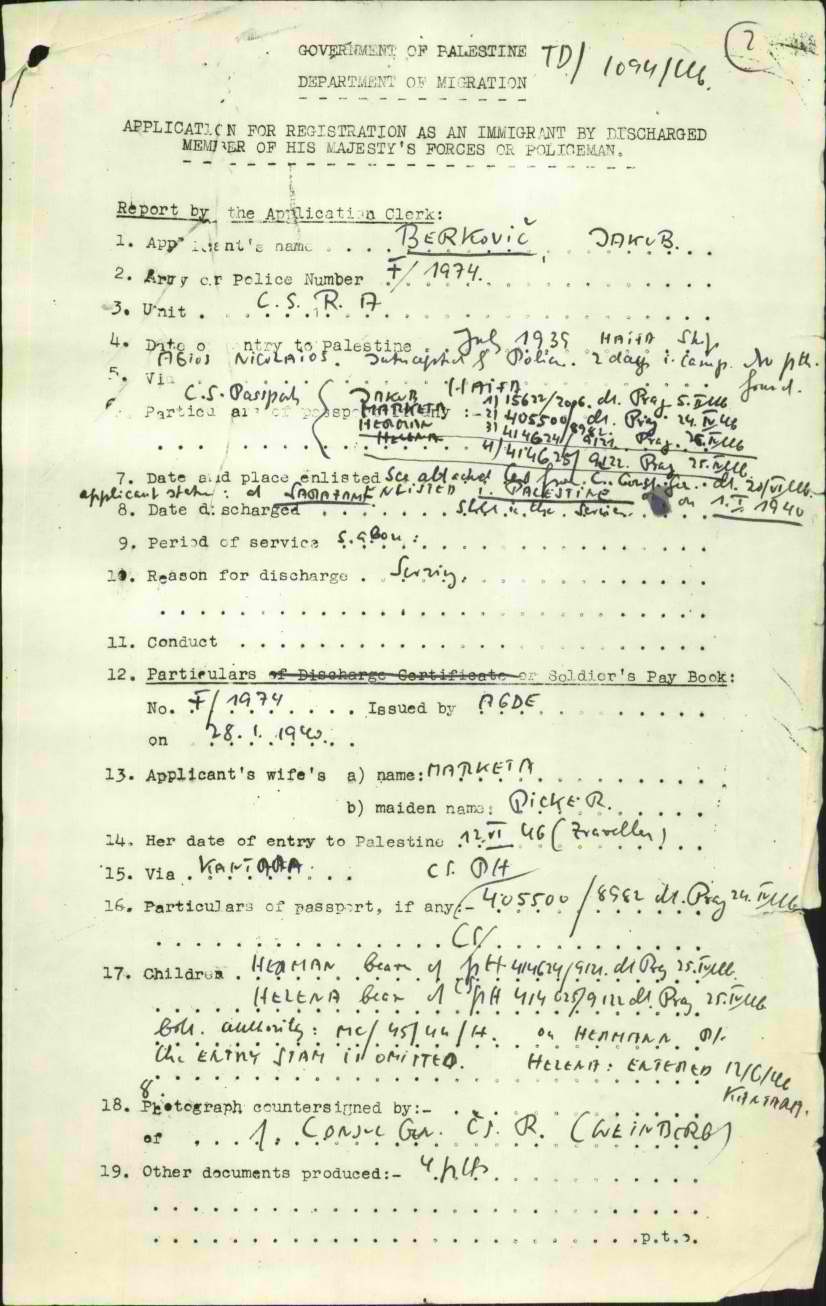 2
GOVERNMENT OF PALESTINE TD/ 1094/46.
DEPARTMENT OF MIGRATION
APPLICATION FOR REGISTRATION AS AN IMMIGRANT BY DISCHARGED
MEMBER OF HIS MAJESTY'S FORCES OR POLICEMAN.
Report by the Application Clerk:
1. Applicant's name . . . . BERKOVIČ, JAKUB.
2. Army or Police Number F/1974.
3. Unit . . C. S. R. A
4. Date of entry to Palestine . July 1939 HAIFA Ship
AGIOS NICOLAIOS. Intercepted by Police. 2 days i. camp. No ppt. found.
5. Via HAIFA
6. Particulars of passport, if any :-
C.S. Passports
JAKUB 1/ 15622/2006. dt. Prag 5. IV 46
MARKETA 2/ 405500/8982 dt. Prag 24. IV 46
HERMAN 3/ 414624/9121. Prag. 25. IV 46
HELENA 4/ 414625/9122. Prag 25. IV 46.
7. Date and place enlisted See attached from C. dt. 20/VI 46.
applicant states: at ENLISTED i. PALESTINE on 1. I. 1940
8. Date discharged . . . Still in the Service.
9. Period of service s. above:
10. Reason for discharge . Serving.
11. Conduct
12. Particulars of Discharge Certificate or Soldier's Pay Book:
No. F/1974 . . . . Issued by AGDE
on 28. I. 1940.
13. Applicant's wife's a) name: MARKETA
b) maiden name: PICKER.
14. Her date of entry to Palestine 12. VI 46 (Traveller)
15. Via . KANTARA . . . ČS. PH
16. Particulars of passport, if any:- 405500/8982 dt. Prag 24. IV 46
CS/
17. Children . HERMAN bearer of ppt 414624/9121. dt Prag 25. IV 46.
HELENA bearer of CS ppt 414625/9122 dt. Prag. 25. IV 46
authority: MC/45/44/H. on HERMANN
the ENTRY STAM IS OMITTED. HELENA: ENTERED 12/6/46
KANTARA.
18. 8 Photograph countersigned by:-
of . . . 1. CONSUL Gen. ČS. R. (WEINBERG)
19. Other documents produced:- 4 ppts
p.t.o.